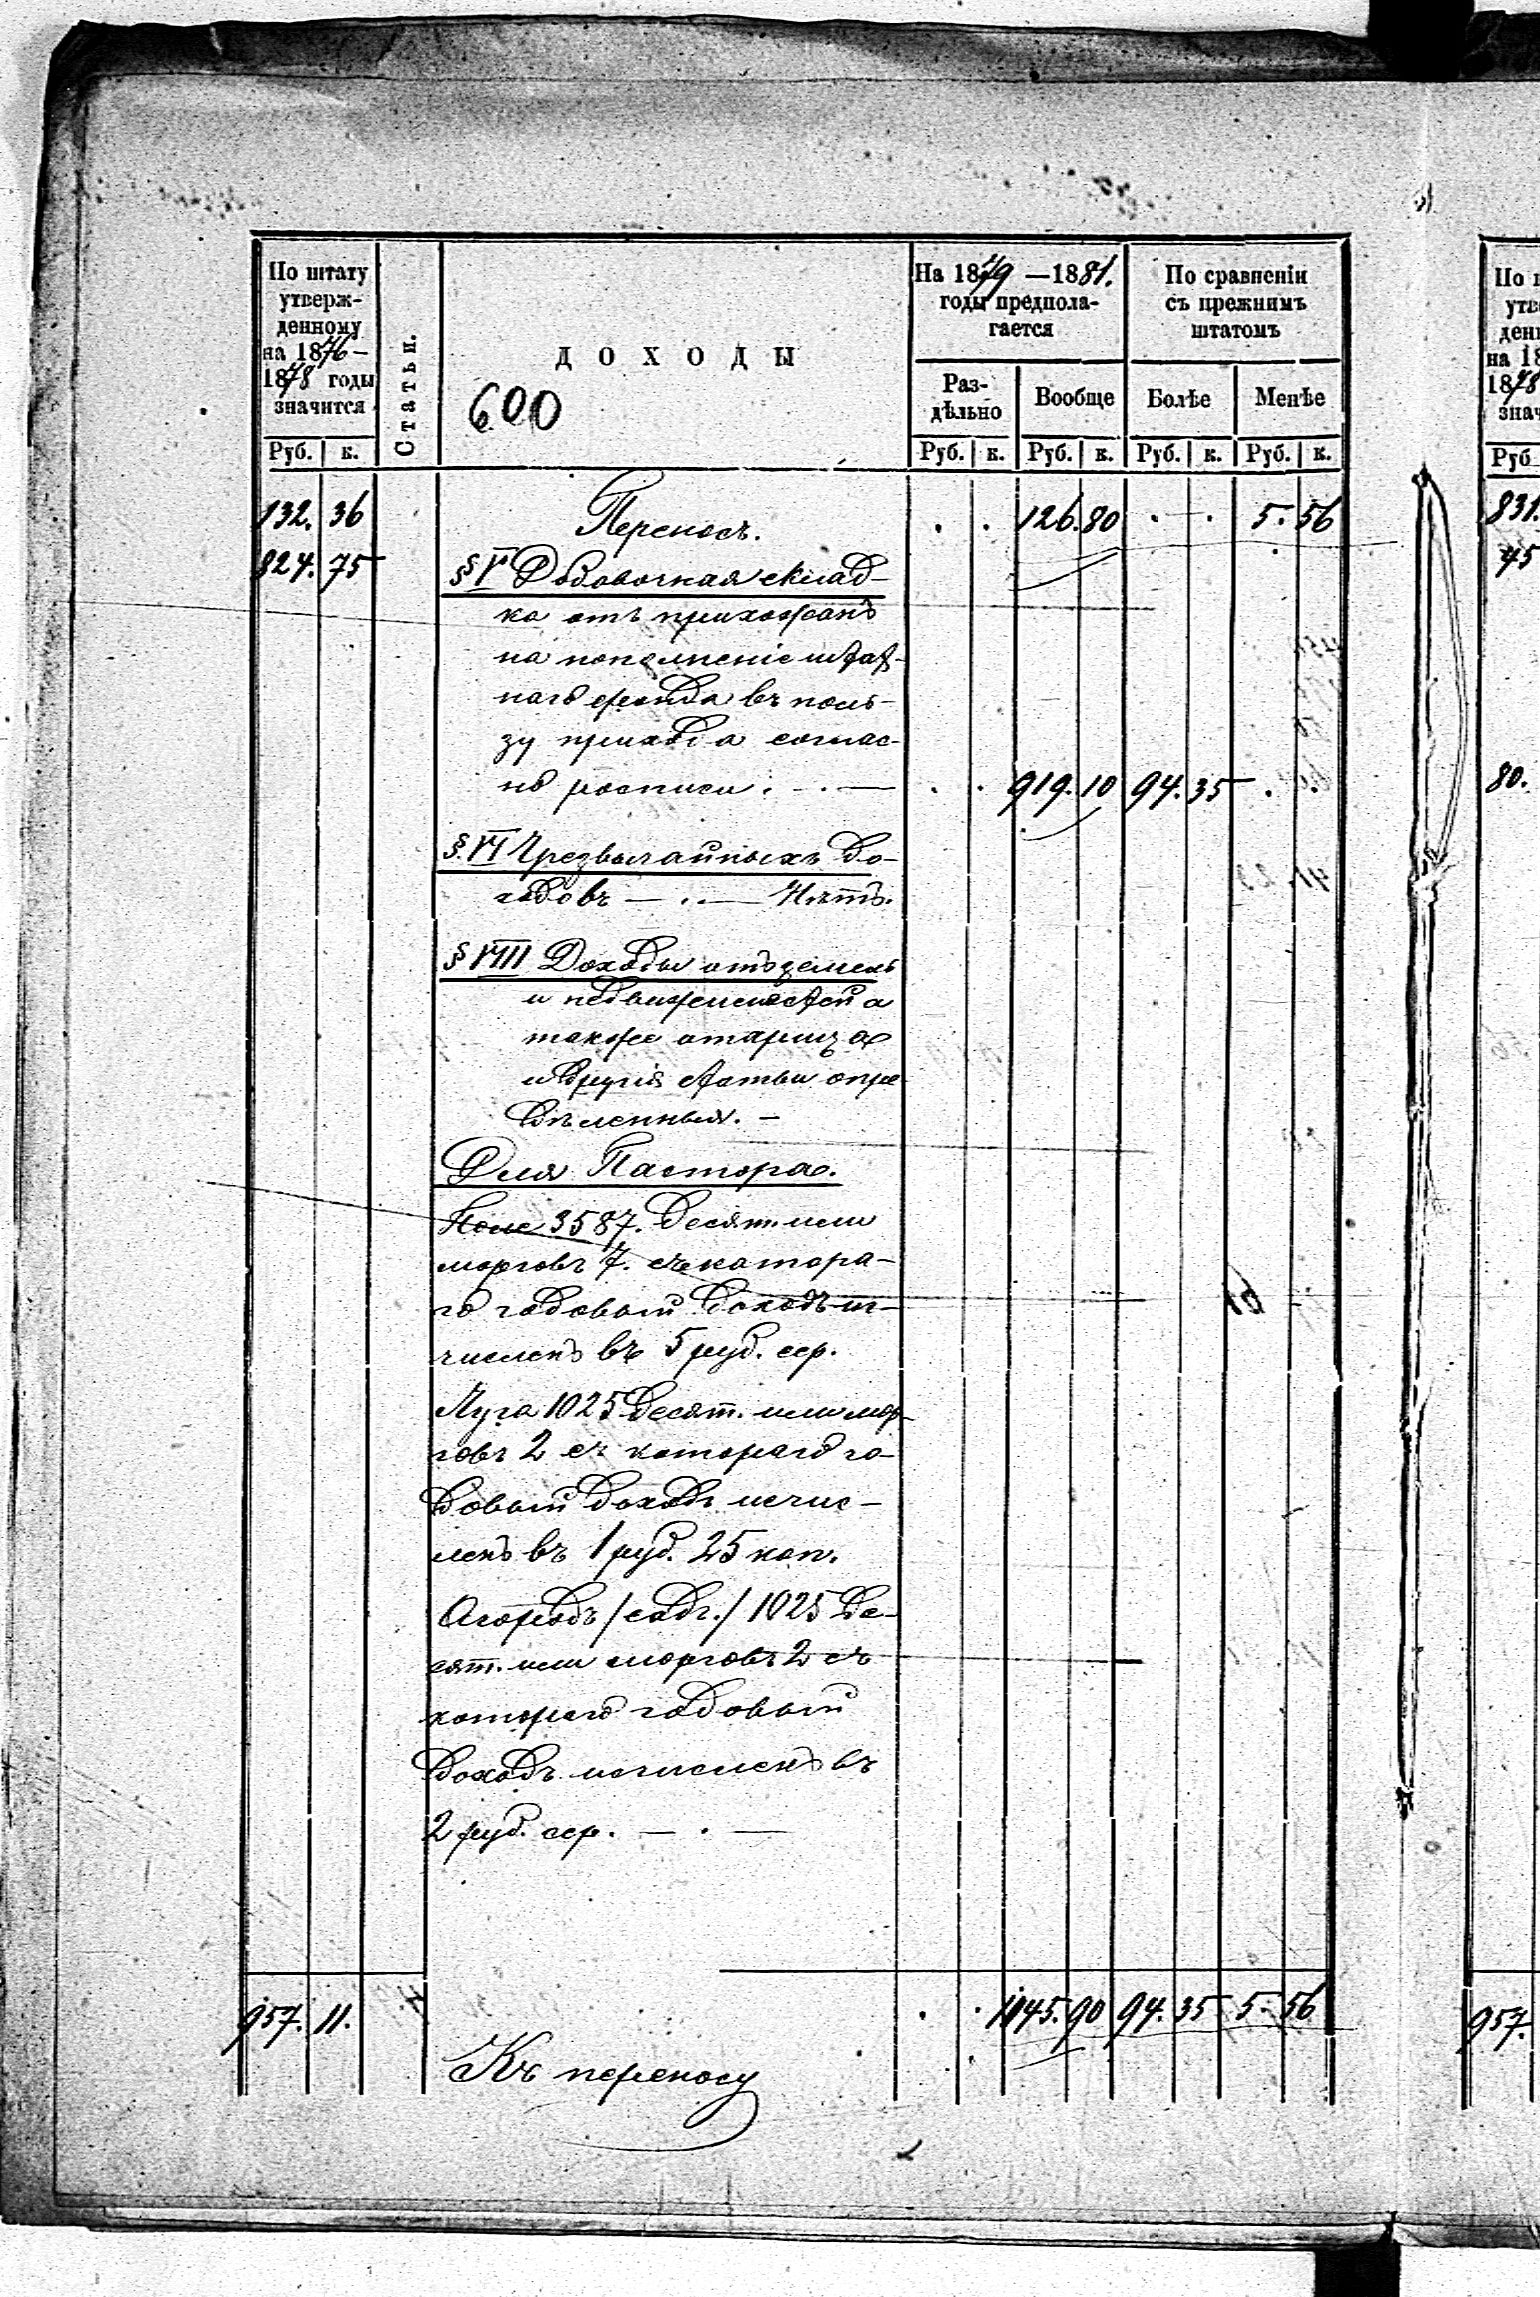 По штату
утверж-
денному
на 1876 –
1878 годы
значится
Руб. к.
Статьи.
ДОХОДЫ
600
На 1879 — 1881.
годы предпола-
гается
Раз-
дѣльно
Руб. к.
Вообще
Руб. к.
По сравненіи
съ прежнимъ
штатомъ
Болѣе
Руб. к.
Менѣе
Руб. к.
132. 36 Переносъ. . . 126. 80 . . 5. 56
824. 75 § V Добовочная склад-
ка отъ прихожанъ
на пополненіе штат-
наго фонда въ поль-
зу прихода соглас-
но росписи . – . — . . 919. 10 94. 35 .
§. VI Чрезвычайныхъ до-
ходовъ — . . — Нѣтъ.
§ VIII Доходы отъ земель
и недвижимостей а
также
и другія статьи опре-
дѣленныя. –
Для Пастора.
Поле 3587. десят. или
морговъ 7. съ котора-
го годовый доходъ ис-
численъ въ 5 руб. сер.
Луга 1025 десят. или мор-
говъ 2 съ котораго го-
довый доходъ исчис-
ленъ въ 1 руб. 25 коп.
Огородъ /садъ./ 1025 де-
сят. или морговъ 2 съ
котораго годовый
доходъ исчисленъ въ
2 руб. сер. — . —
957. 11. . . 1045. 90 94. 35 5. 56
Къ переносу
По
утв
ден
на 18
1878
знач
Руб
831.
45
80.
957.